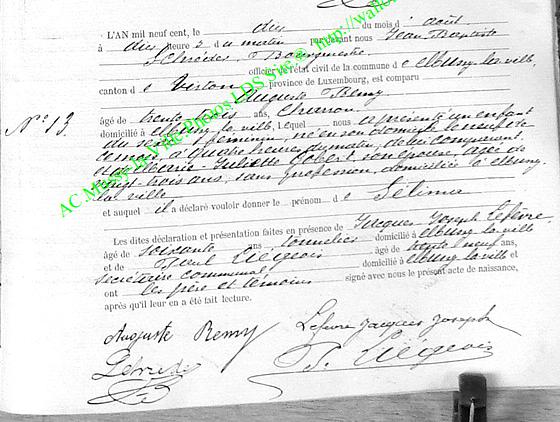 L'AN mil neuf cent, le dix du mois d'août
à dix heures du matin par devant nous Jean Baptiste
Schréder Bourgmestre
officier de l'état civil de la commune d e Mussy-la-ville,
canton d e Virton, province de Luxembourg, est comparu
Auguste Remy
N° 13.
âgé de trente trois ans, Charron
domicilié à Mussy-la-ville, lequel nous a présenté un enfant
du sexe féminin, né en son domicile le neuf de
ce mois, à quatre heures du matin, de lui comparant
et de Juliette Gobert son épouse, âgée de
vingt-trois ans, sans profession, domiciliée à Mussy-
la-ville
et auquel il a déclaré vouloir donner le prénom d e Zélima
Les dites déclaration et présentation faites en présence de Jacques Joseph Lefèvre
âgé de soixante ans domicilié à Mussy-la-ville
et de Paul Liégeois âgé de trente neuf ans,
secrétaire communal domicilié à Mussy-la-ville et
ont les père et témoins signé avec nous le présent acte de naissance,
après qu'il leur en a été fait lecture.
Auguste Remy Lefevre Jacques Joseph
P. Liégeois
AC Mussy-la-Ville Photos LDS Site @ http://wallo